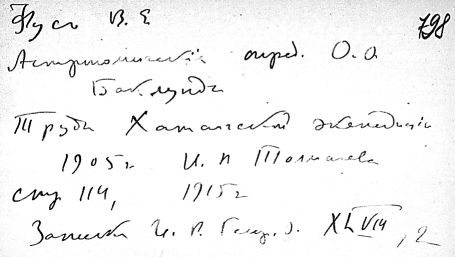 Фусъ В. Е 798
Астрономическія опред. О. О.
Баклунда
Труды Хатангской экспедиціи
1905 г И. П Толмачева
стр 114, 1915 г
Записки И. Р. Геогр. О. XLVIII, 2